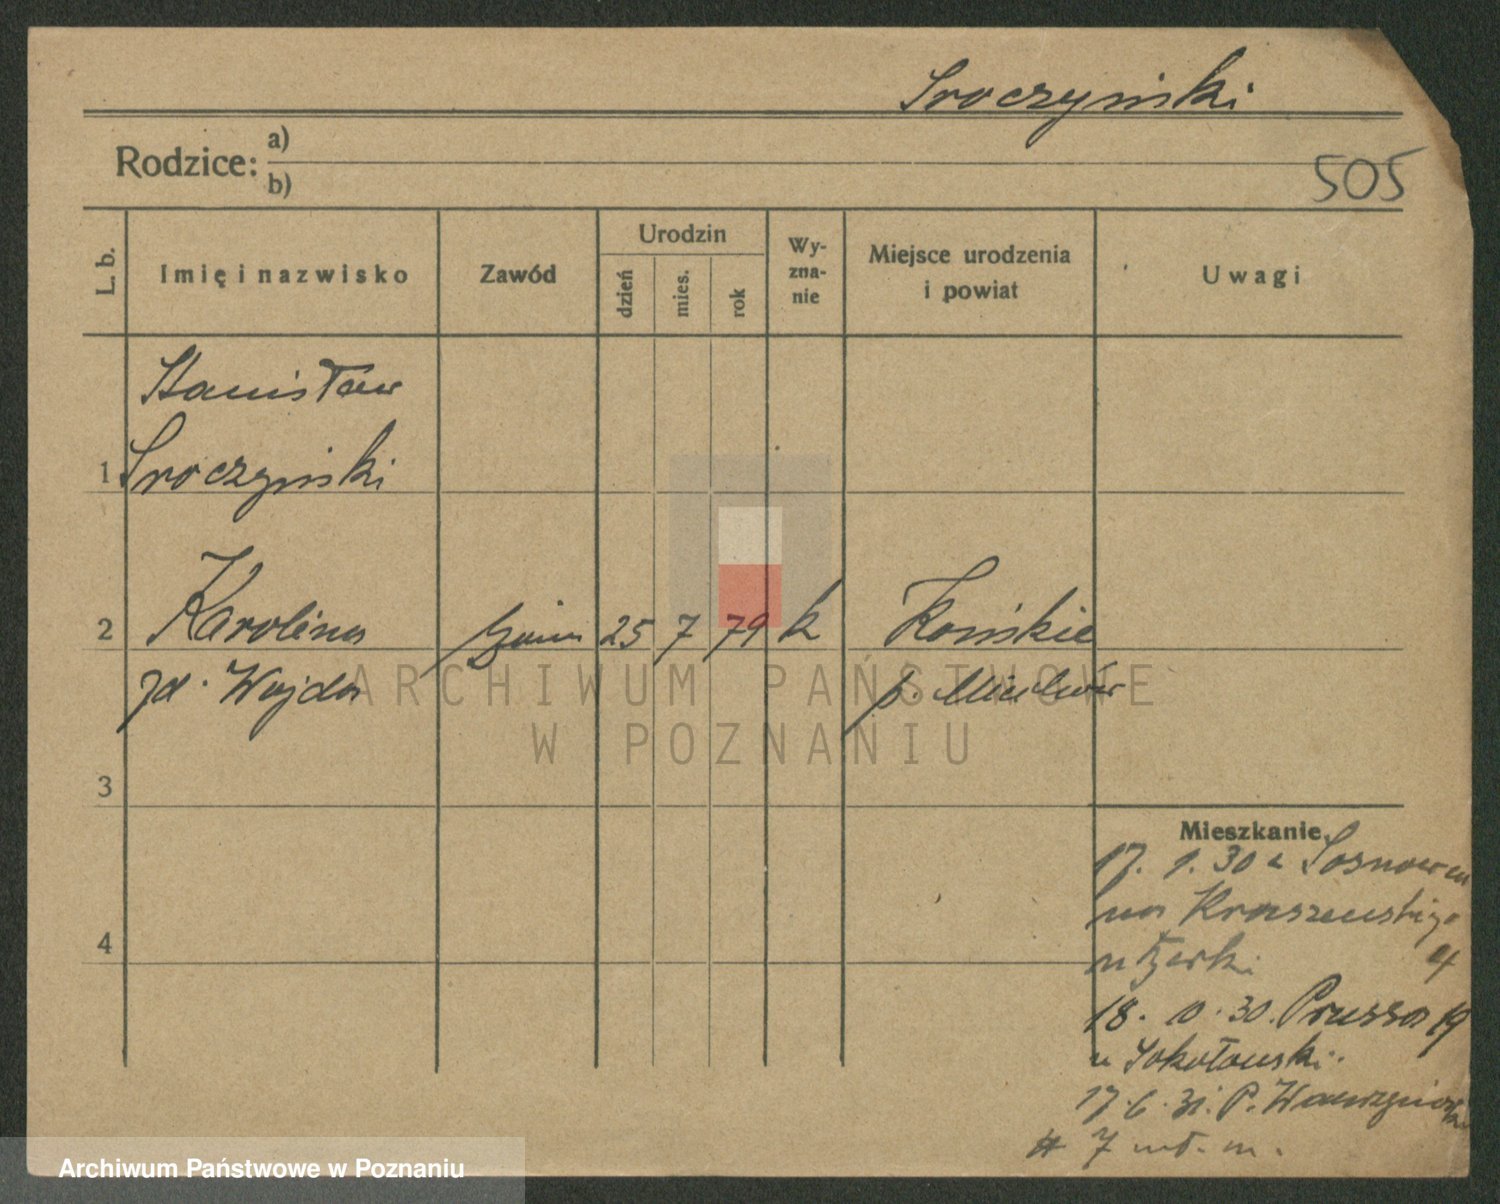 Sroczyński
Rodzice: a)
b)
505
L. b.
Imię i nazwisko
Zawód
Urodzin
dzień
mies.
rok
Wy-
zna-
nie
Miejsce urodzenia
i powiat
Uwagi
Stanisław
1 Sroczyński
2 Karolina 25 7 79 k Końskie
zd. Wajda p.
ARCHIWUM PAŃSTWOWE
W POZNANIU
3
Mieszkanie
17. 1. 30 z Sosnowca
na Kraszewskiego
4
18. 10. 30. Prussa 19
u Sokołowski.
17. 6. 31. P. Wawrzyniaka
7 m.
Archiwum Państwowe w Poznaniu